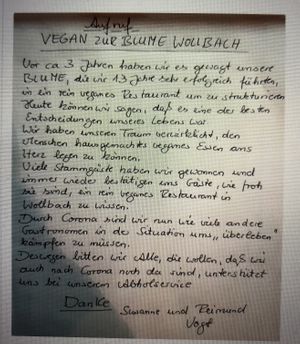 Aufruf
VEGAN ZUR BLUME WOLLBACH
Vor ca 3 Jahren haben wir es gewagt unsere
BLUME, die wir 13 Jahre sehr erfolgreich führten,
in ein rein veganes Restaurant um zu strukturieren
Heute können wir sagen, daß es eine der besten
Entscheidungen unseres Lebens war
Wir haben unseren Traum verwirklicht, den
Menschen hausgemachtes veganes Essen ans
Herz legen zu können.
Viele Stammgäste haben wir gewonnen und
immer wieder bestätigen uns Gäste, wie froh
sie sind, ein rein veganes Restaurant in
Wollbach zu wissen.
Durch Corona sind wir nun wie viele andere
Gastronomen in der Situation ums „überleben"
kämpfen zu müssen.
Deswegen bitten wir Alle, die wollen, daß wir
auch nach Corona noch da sind, unterstützt
uns bei unserem Abholservice
Danke
Susanne und Reimund
Vogt